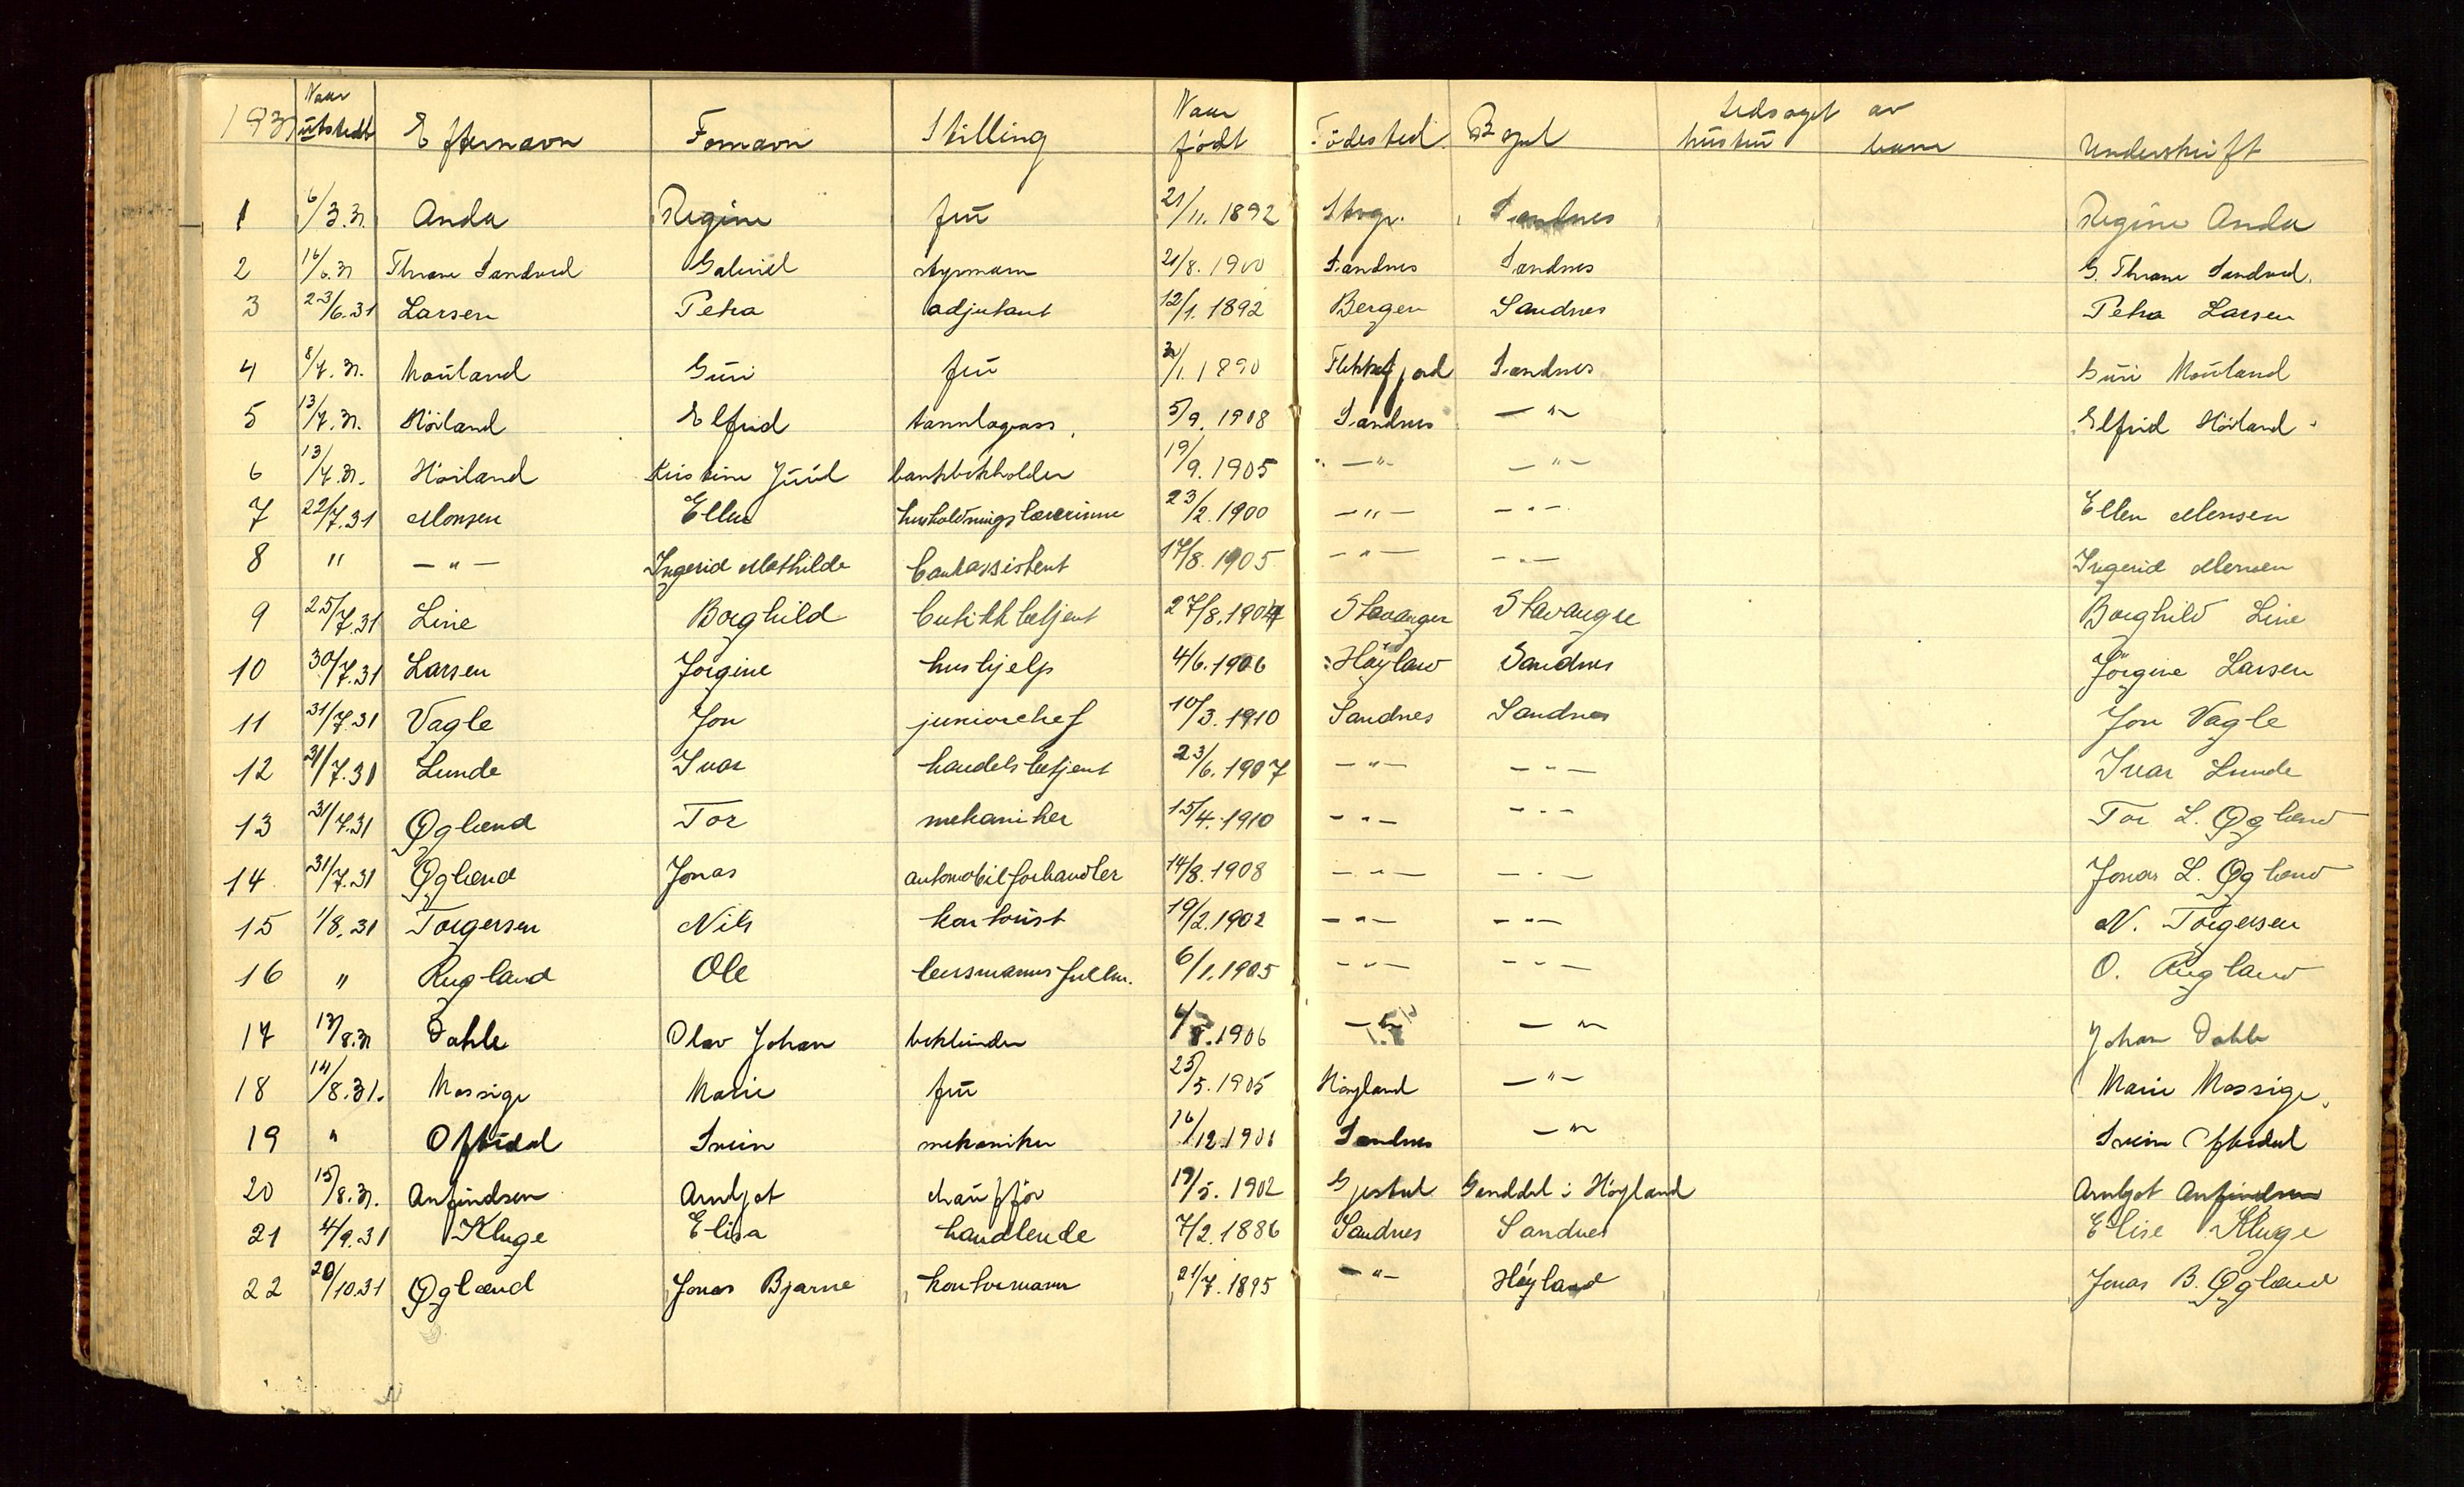 1931 Naar utstedt Efternavn Fornavn Stilling Naar født Födested Bopel Ledsaget av hustru barn Underskrift
1 6/3.31 Anda Regine fru 21/11.1892 Stvgr. Sandnes Regine Anda
2 16/6.31 Thrane Sandved Gabriel styrmann 21/8.1900 Sandnes Sandnes G. Thrane Sandved.
3 23/6.31 Larsen Petra adjutant 12/1.1892 Bergen Sandnes Petra Larsen
4 8/7.31. Mauland Guri fru /1.1890 Flekkefjord Sandnes Guri Mauland
5 13/7.31. Höiland Elfrid tannlægeass. 5/9.1908 Sandnes —"— Elfrid Höiland
6 13/7.31. Höiland Kristine Juul bankbokholder 19/9.1905 —"— —"—
7 22/7.31 Monsen Ellen husholdningslærerinne 23/2.1900 —"— —"— Ellen Monsen
8 " —"— Ingerid Mathilde bankassistent 17/8.1905 —"— —"— Ingerid Monsen
9 25/7.31 Line Borghild butikkbetjent 27/8.1904 Stavanger Stavanger Borghild Line
10 30/7.31 Larsen Jörgine hushjelp 4/6.1906 Höyland Sandnes Jörgine Larsen
11 31/7.31 Vagle Jon juniorchef 10/3.1910 Sandnes Sandnes Jon Vagle
12 31/7.31 Lunde Ivar handelsbetjent 23/6.1907 —"— —"— Ivar Lunde
13 31/7.31 Øglænd Tor mekaniker 15/4.1910 —"— —"— Tor L. Øglænd
14. 31/7.31 Øglænd Jonas automobilforhandler 14/8.1908 —"— —"— Jonas L. Øglænd
15 1/8.31 Torgersen Nils kontorist 19/2.1902 —"— —"— N. Torgersen
16 " Rugland Ole lensmannsfullm. 6/1.1905 —"— —"— O. Rugland
17 13/8.31 Dahle Olav Johan bokbinder 4/8.1906 —"— —"— Johan Dahle
18 14/8.31. Mossige Marie fru 25/5.1905 Höyland —"— Marie Mossige.
19 " Oftedal Svein mekaniker 16/12.1906 Sandnes —"— Svein Oftedal
20 15/8.31. Anfindsen Arnljot chauffför 19/5.1902 Gjestal Ganddal i Höyland Arnljot Anfindsen
21 4/9.31 Kluge Elisa handlende 7/2.1886 Sandnes Sandnes Elise Kluge
22 20/10.31 Øglænd Jonas Bjarne kontormann 21/7.1895 —"— Höyland Jonas B. Øglænd